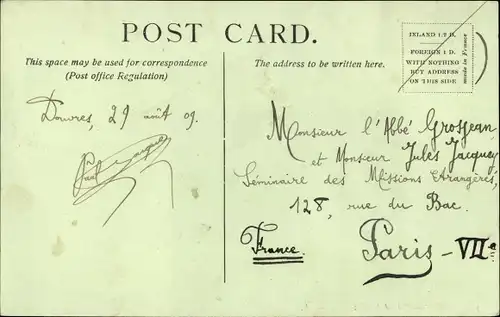 POST CARD.
This space may be used for correspondence
(Post office Regulation)
The address to be written here.
INLAND 1/2 D.
FOREIGN 1 D.
WITH NOTHING
BUT ADDRESS
ON THIS SIDE
made in France
Douvres, 29 août 09.
Monsieur l'Abbé Grosjean
et Monsieur Jules Jacquey
Séminaire des Missions Etrangères,
128, rue du Bac.
France.
Paris - VIIe